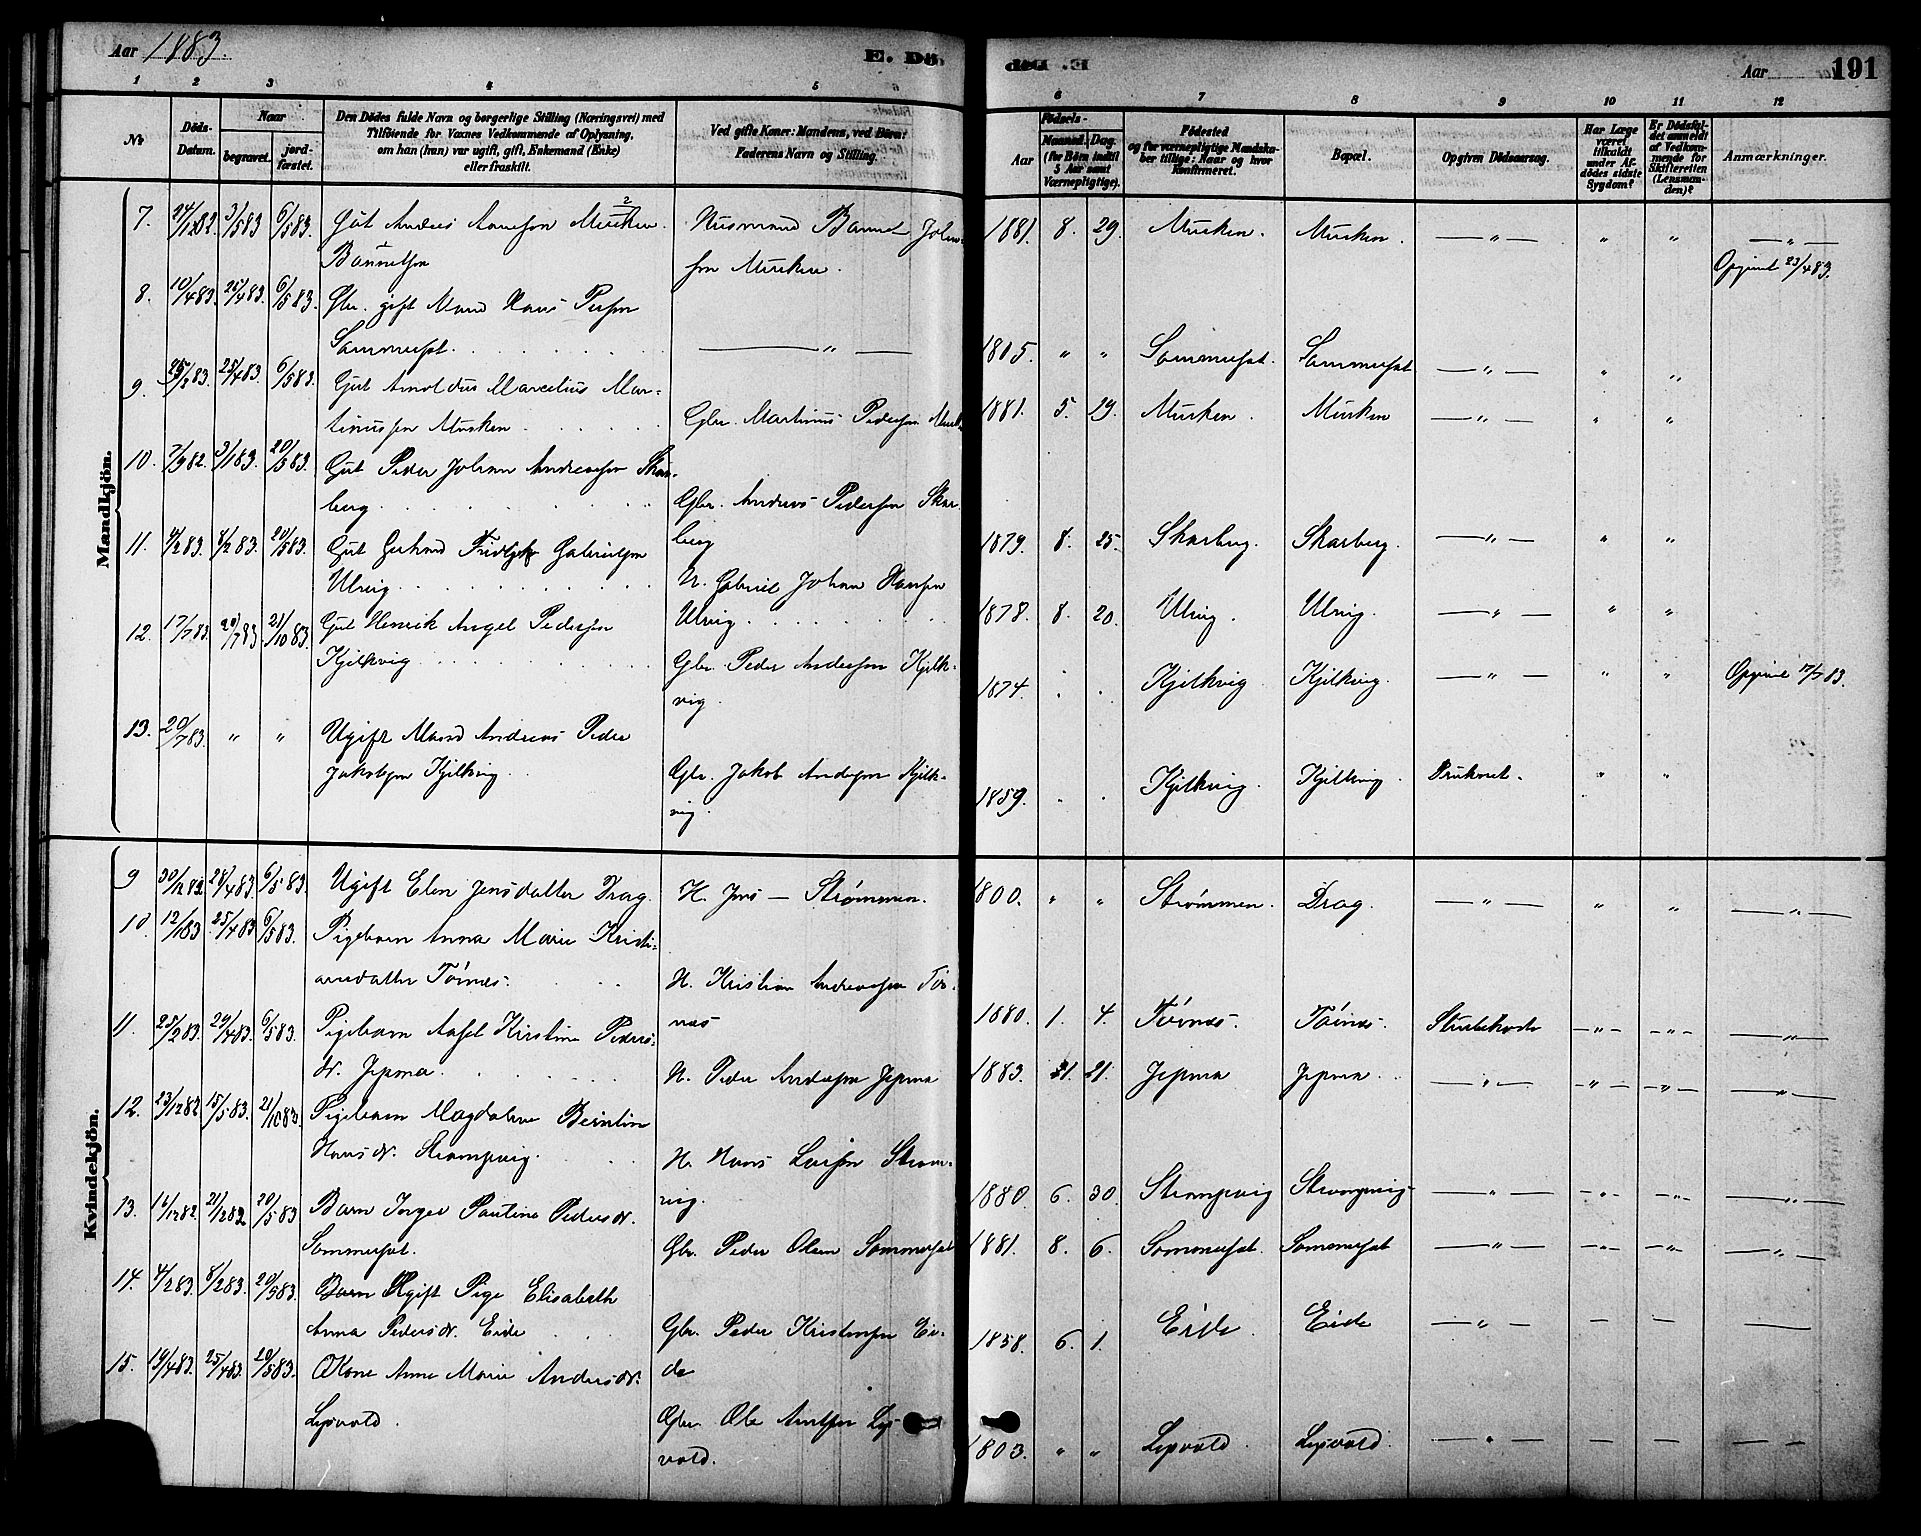 Aar 1883.
E. Dö
191
Aar
1 2 3 4 5 6 7 8 9 10 11 12
No
Döds-Datum.
Naar
begravet. jordfæstet.
Den Dödes fulde Navn og borgerlige Stilling (Næringsvei) med
Tilföiende for Voxnes Vedkommende af Oplysning,
om han (hun) var ugift, gift, Enkemand (Enke)
eller fraskilt.
Ved gifte Koner: Mandens, ved Börn:
Faderens Navn og Stilling.
Födsels-
Aar
Maaned. Dag.
(for Börn indtil
5 Aar samt
Værnepligtige).
Födested
og for værnepligtige Mandska-
ber tillige: Naar og hvor
konfirmeret.
Bopæl.
Opgiven Dödsaarsag.
Har Læge
været
tilkaldt
under Af-
dödes sidste
Sygdom?
Er Dödsfal-
det anmeldt
af Vedkom-
mende for
Skifteretten
(Lensman-
den)?
Anmærkninger.
Mandkjön.
7. 3/5 83 6/5 83. Gut Andreas Musken. Husmand Johan- 1881. 8. 29. Musken. Musken. — " — " " — " —
sen Musken.
Opgivet 23/4 83.
8. 10/4 83. 25/4 83. 6/5 83. Gbr. gift Mand Hans Persen
Sommerset. — " — 1805. " " Sommerset. Sommerset — " — " "
9. 25/4 83. 6/5 83. Gut Arnoldus Marcelius Mar-
tinussen Musken. Gbr. Martinus Pedersen 1881. 5. 29. Musken. Musken — " — " "
10. 7/9 82. 3/1 83. 20/5 83. Gut Peder Johan Andreassen Skar-
berg. Gbr. Andreas Pedersen Skar-
berg 1879. 8. 25. Skarberg. Skarberg. — " — " "
11. 4/2 83. 8/2 83. 20/5 83. Gut Gerhard Gabrielsen
Ulvig. H. Gabriel Johan Hansen
Ulvig. 1878. 8. 20. Ulvig. Ulvig. — " — " "
12. 17/7 83. 20/7 83 21/10 83. Gut Henrik Angel Pedersen
Kjelkvig. Gbr. Peder Andersen Kjelk-
vig. 1874. Kjelkvig Kjelkvig. — " — " " Opgivet 17/7 83.
13. 20/7 83. " " Ugift Mand Andreas Peder
Jakobsen Kjelkvig. Gbr. Jakob Andersen Kjelk-
vig. 1859. Kjelkvig. Kjelkvig. Druknet. " "
Kvindekjön.
9 30/12 82. 28/4 83. 6/5 83. Ugift Elen Jensdatter Drag. H. Jens — Strømmen. 1800. " " Strømmen. Drag. — " — " " — " —
10. 12/1 83 25/4 83 6/5 83. Pigebarn Anna Marie Kristi-
ansdatter Tórnes. H. Kristian Andreassen Tór-
nes 1880. 1. 4. Tórnes. Tórnes. Strubehoste — " — — " — — " —
11. 25/2 83. 29/4 83. 6/5 83. Pigebarn Aasel Kristine Peders-
dr. Jepma. H. Peder Andersen Jepma 1883. 21. Jepma Jepma — " — — " — — " — — " —
12. 23/12 82 15/5 83. 21/10 83. Pigebarn Magdalena
Hansdr. Strompvig. H. Hans Larsen Strom-
vig. 1880. 6. 30 Strompvig Strompvig — " — — " — — " — — " —
13. 16/12 82. 21/12 82 20/5 83 Barn Inger Pauline Pedersdr.
Sommerset. Gbr. Peder Olsen Sommerset 1881. 8. 6. Sommerset. Sommerset — " — — " — — " — — " —
14. 4/2 83. 8/2 83. 20/5 83. Ugift Pige Elisabeth
Anna Pedersdr. Eide Gbr. Peder Kristensen Ei-
de 1858. 6. 1. Eide. Eide — " — — — —
15. 19/4 83. 25/4 83. 20/5 83. Kone Anne Marie Andersdr.
Lepvold. Gbr. Ole Lep-
vold. 1803. " " Lepvold. Lepvold. — " — — — —